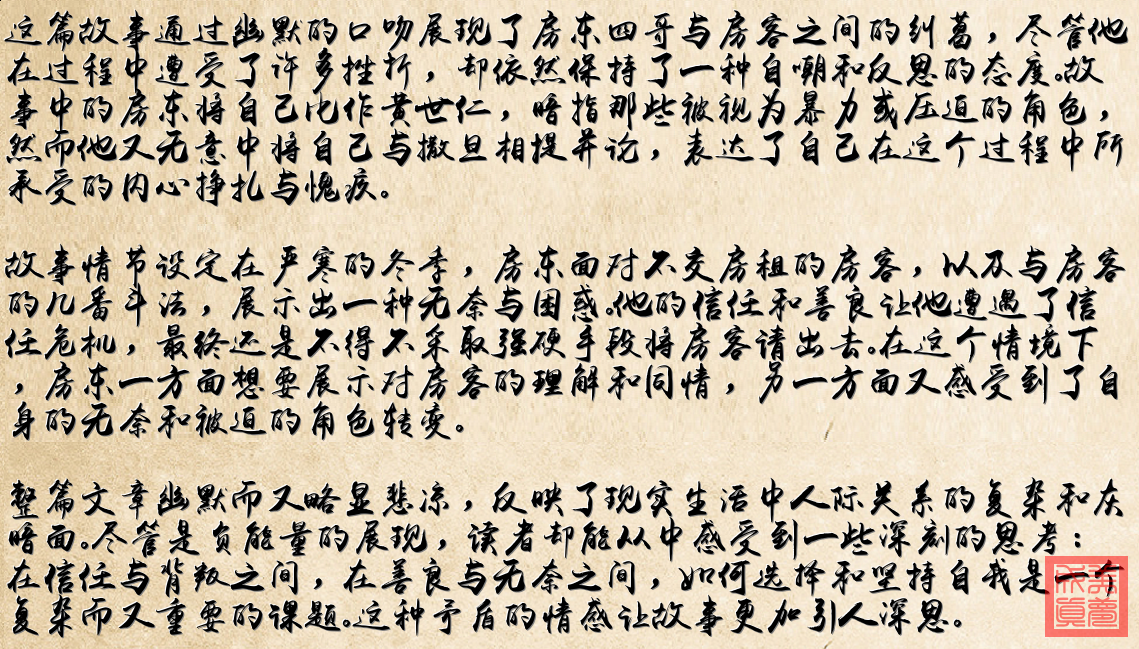 这篇故事通过幽默的口吻展现了房东四哥与房客之间的纠葛，尽管他
在过程中遭受了许多挫折，却依然保持了一种自嘲和反思的态度。故
事中的房东将自己比作黄世仁，暗指那些被视为暴力或压迫的角色，
然而他又无意中将自己与撒旦相提并论，表达了自己在这个过程中所
承受的内心挣扎与愧疚。
故事情节设定在严寒的冬季，房东面对不交房租的房客，以及与房客
的几番斗法，展示出一种无奈与困惑。他的信任和善良让他遭遇了信
任危机，最终还是不得不采取强硬手段将房客请出去。在这个情境下
，房东一方面想要展示对房客的理解和同情，另一方面又感受到了自
身的无奈和被迫的角色转变。
整篇文章幽默而又略显悲凉，反映了现实生活中人际关系的复杂和灰
暗面。尽管是负能量的展现，读者却能从中感受到一些深刻的思考：
在信任与背叛之间，在善良与无奈之间，如何选择和坚持自我是一个
复杂而又重要的课题。这种矛盾的情感让故事更加引人深思。